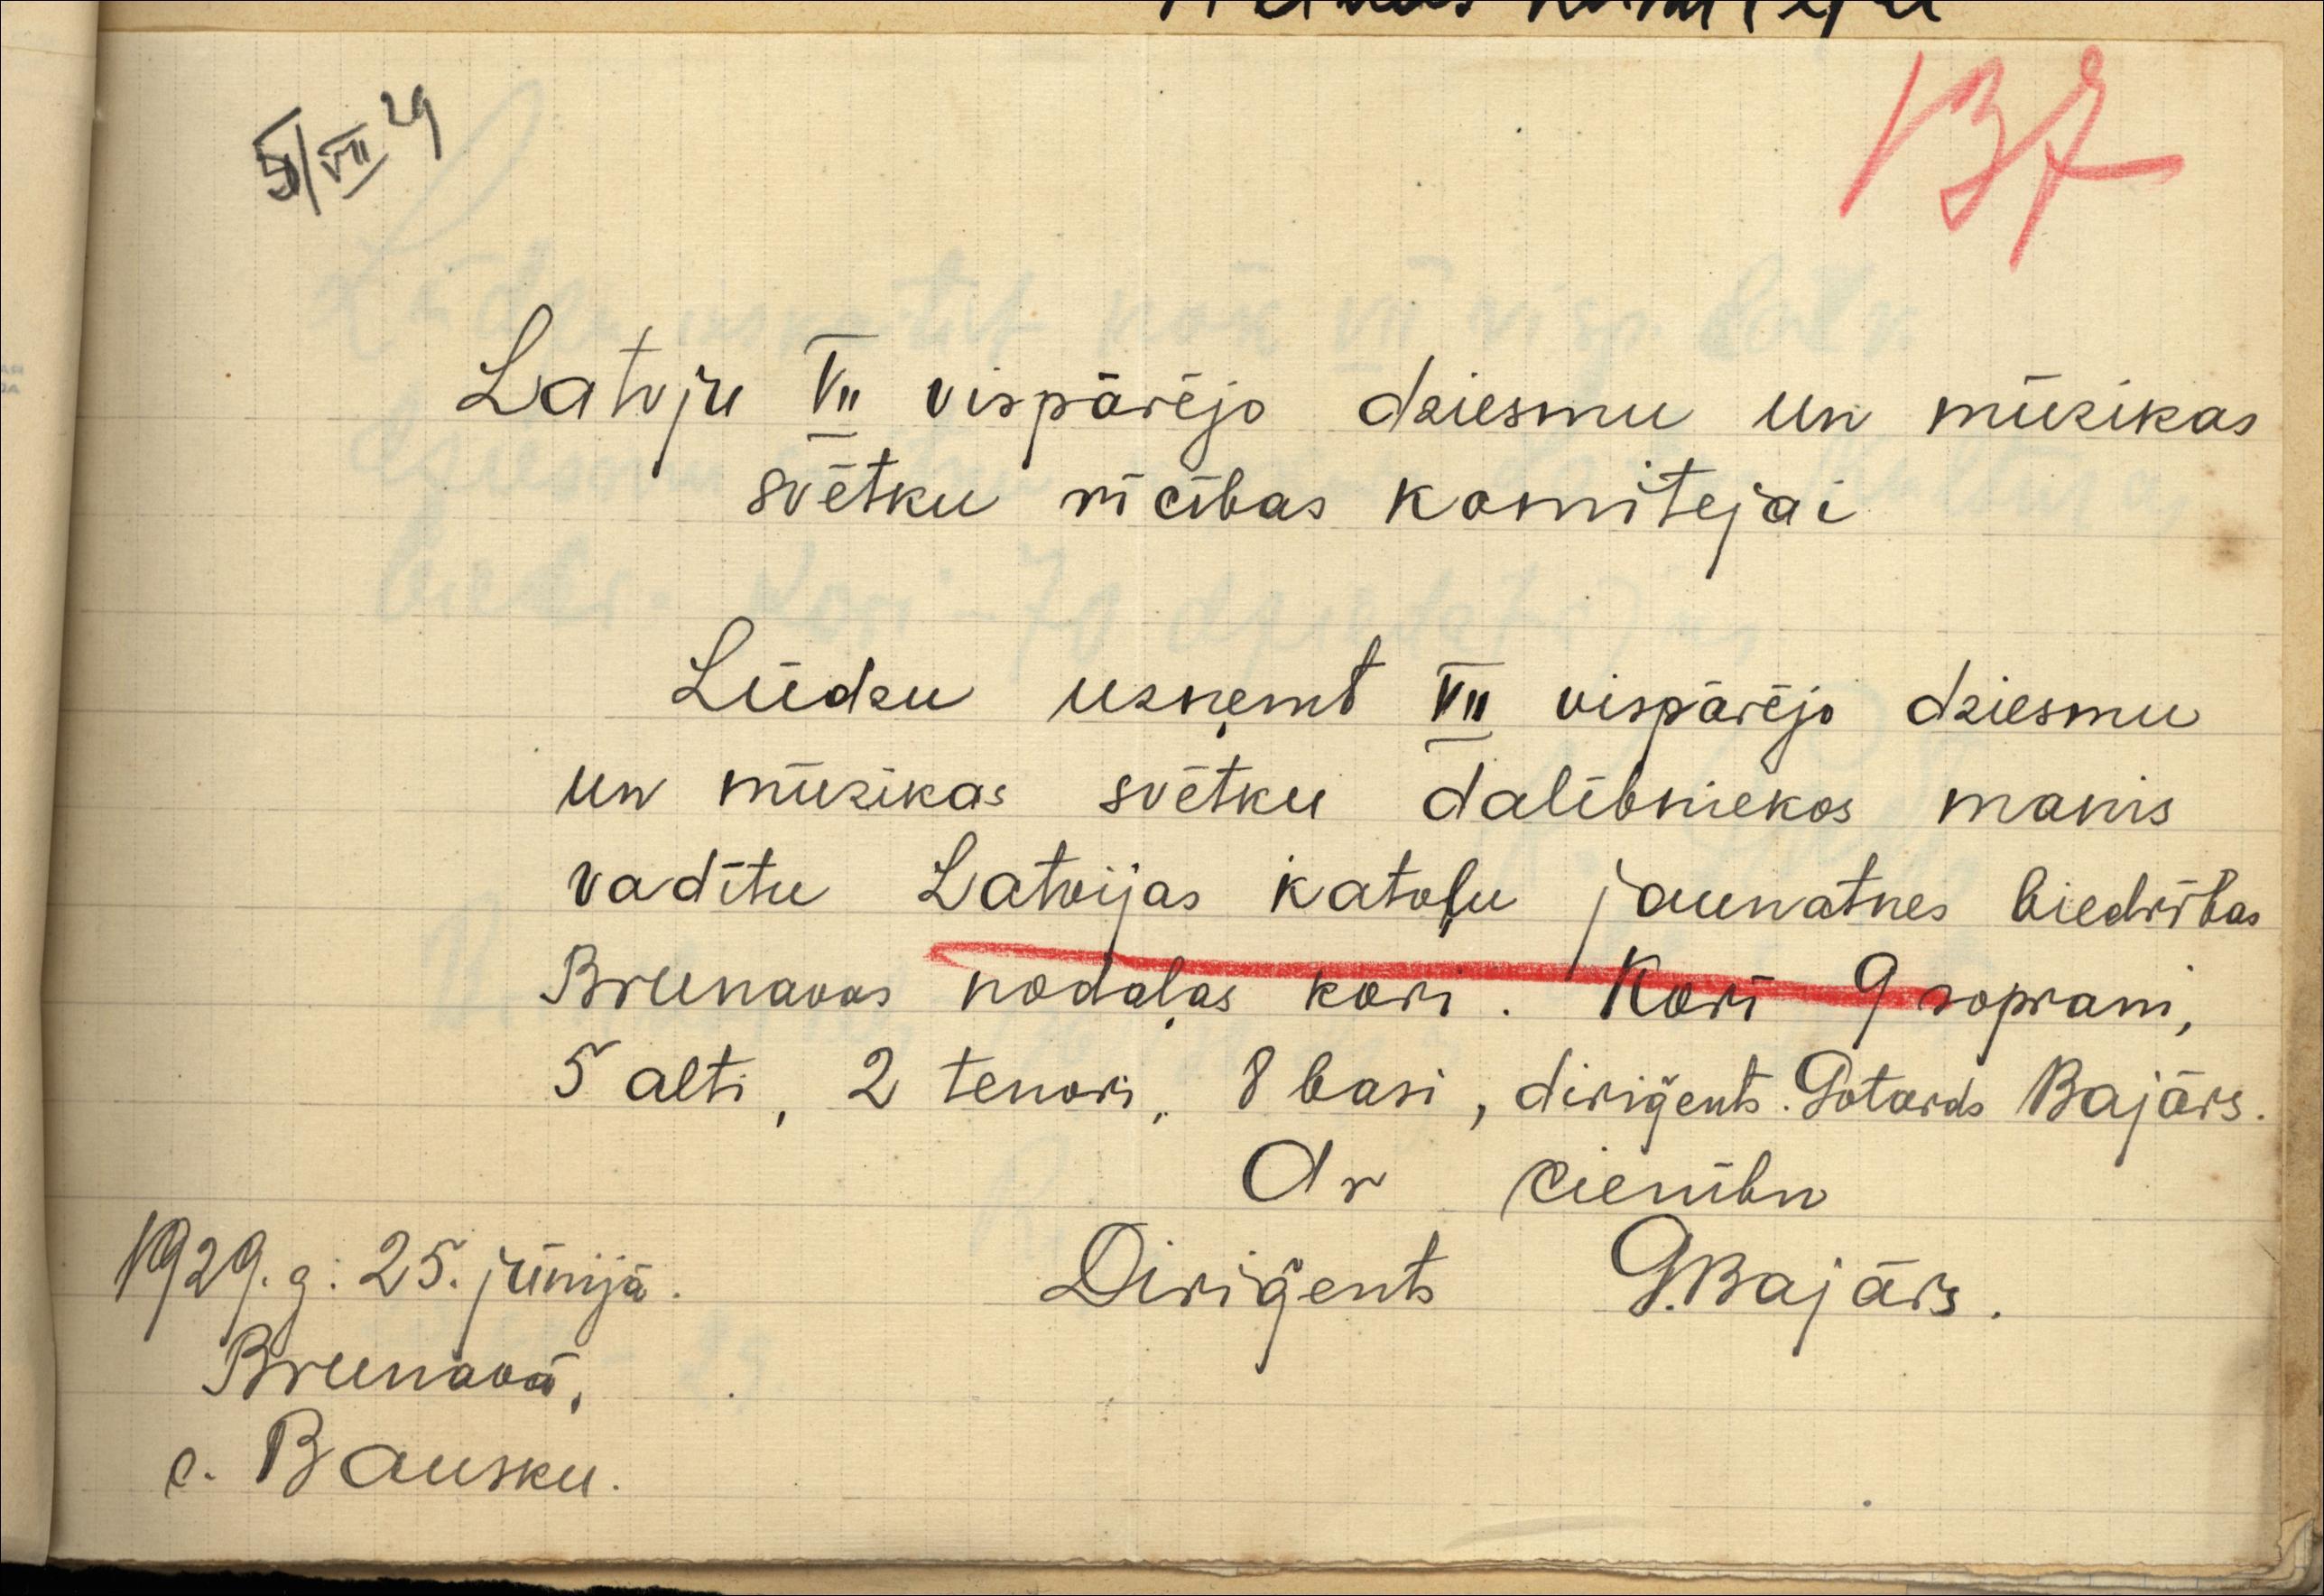 5/VII 29
137
Latvju VII vispārējo dziesmu un mūzikas
svētku rīcības komitejai
Lūdzu uzņemt VII vispārējo dziesmu
un mūzikas svētku dalībniekos manis
vadītu Latvijas katoļu jaunatnes biedrības
Brunavas nodaļas kori. Korī 9 soprani,
5 alti, 2 tenori, 8 basi, diriģents Gotards Bajārs.
Ar cienību
Diriģents G. Bajārs.
1929. g. 25. jūnijā.
Brunavā,
c. Bausku.